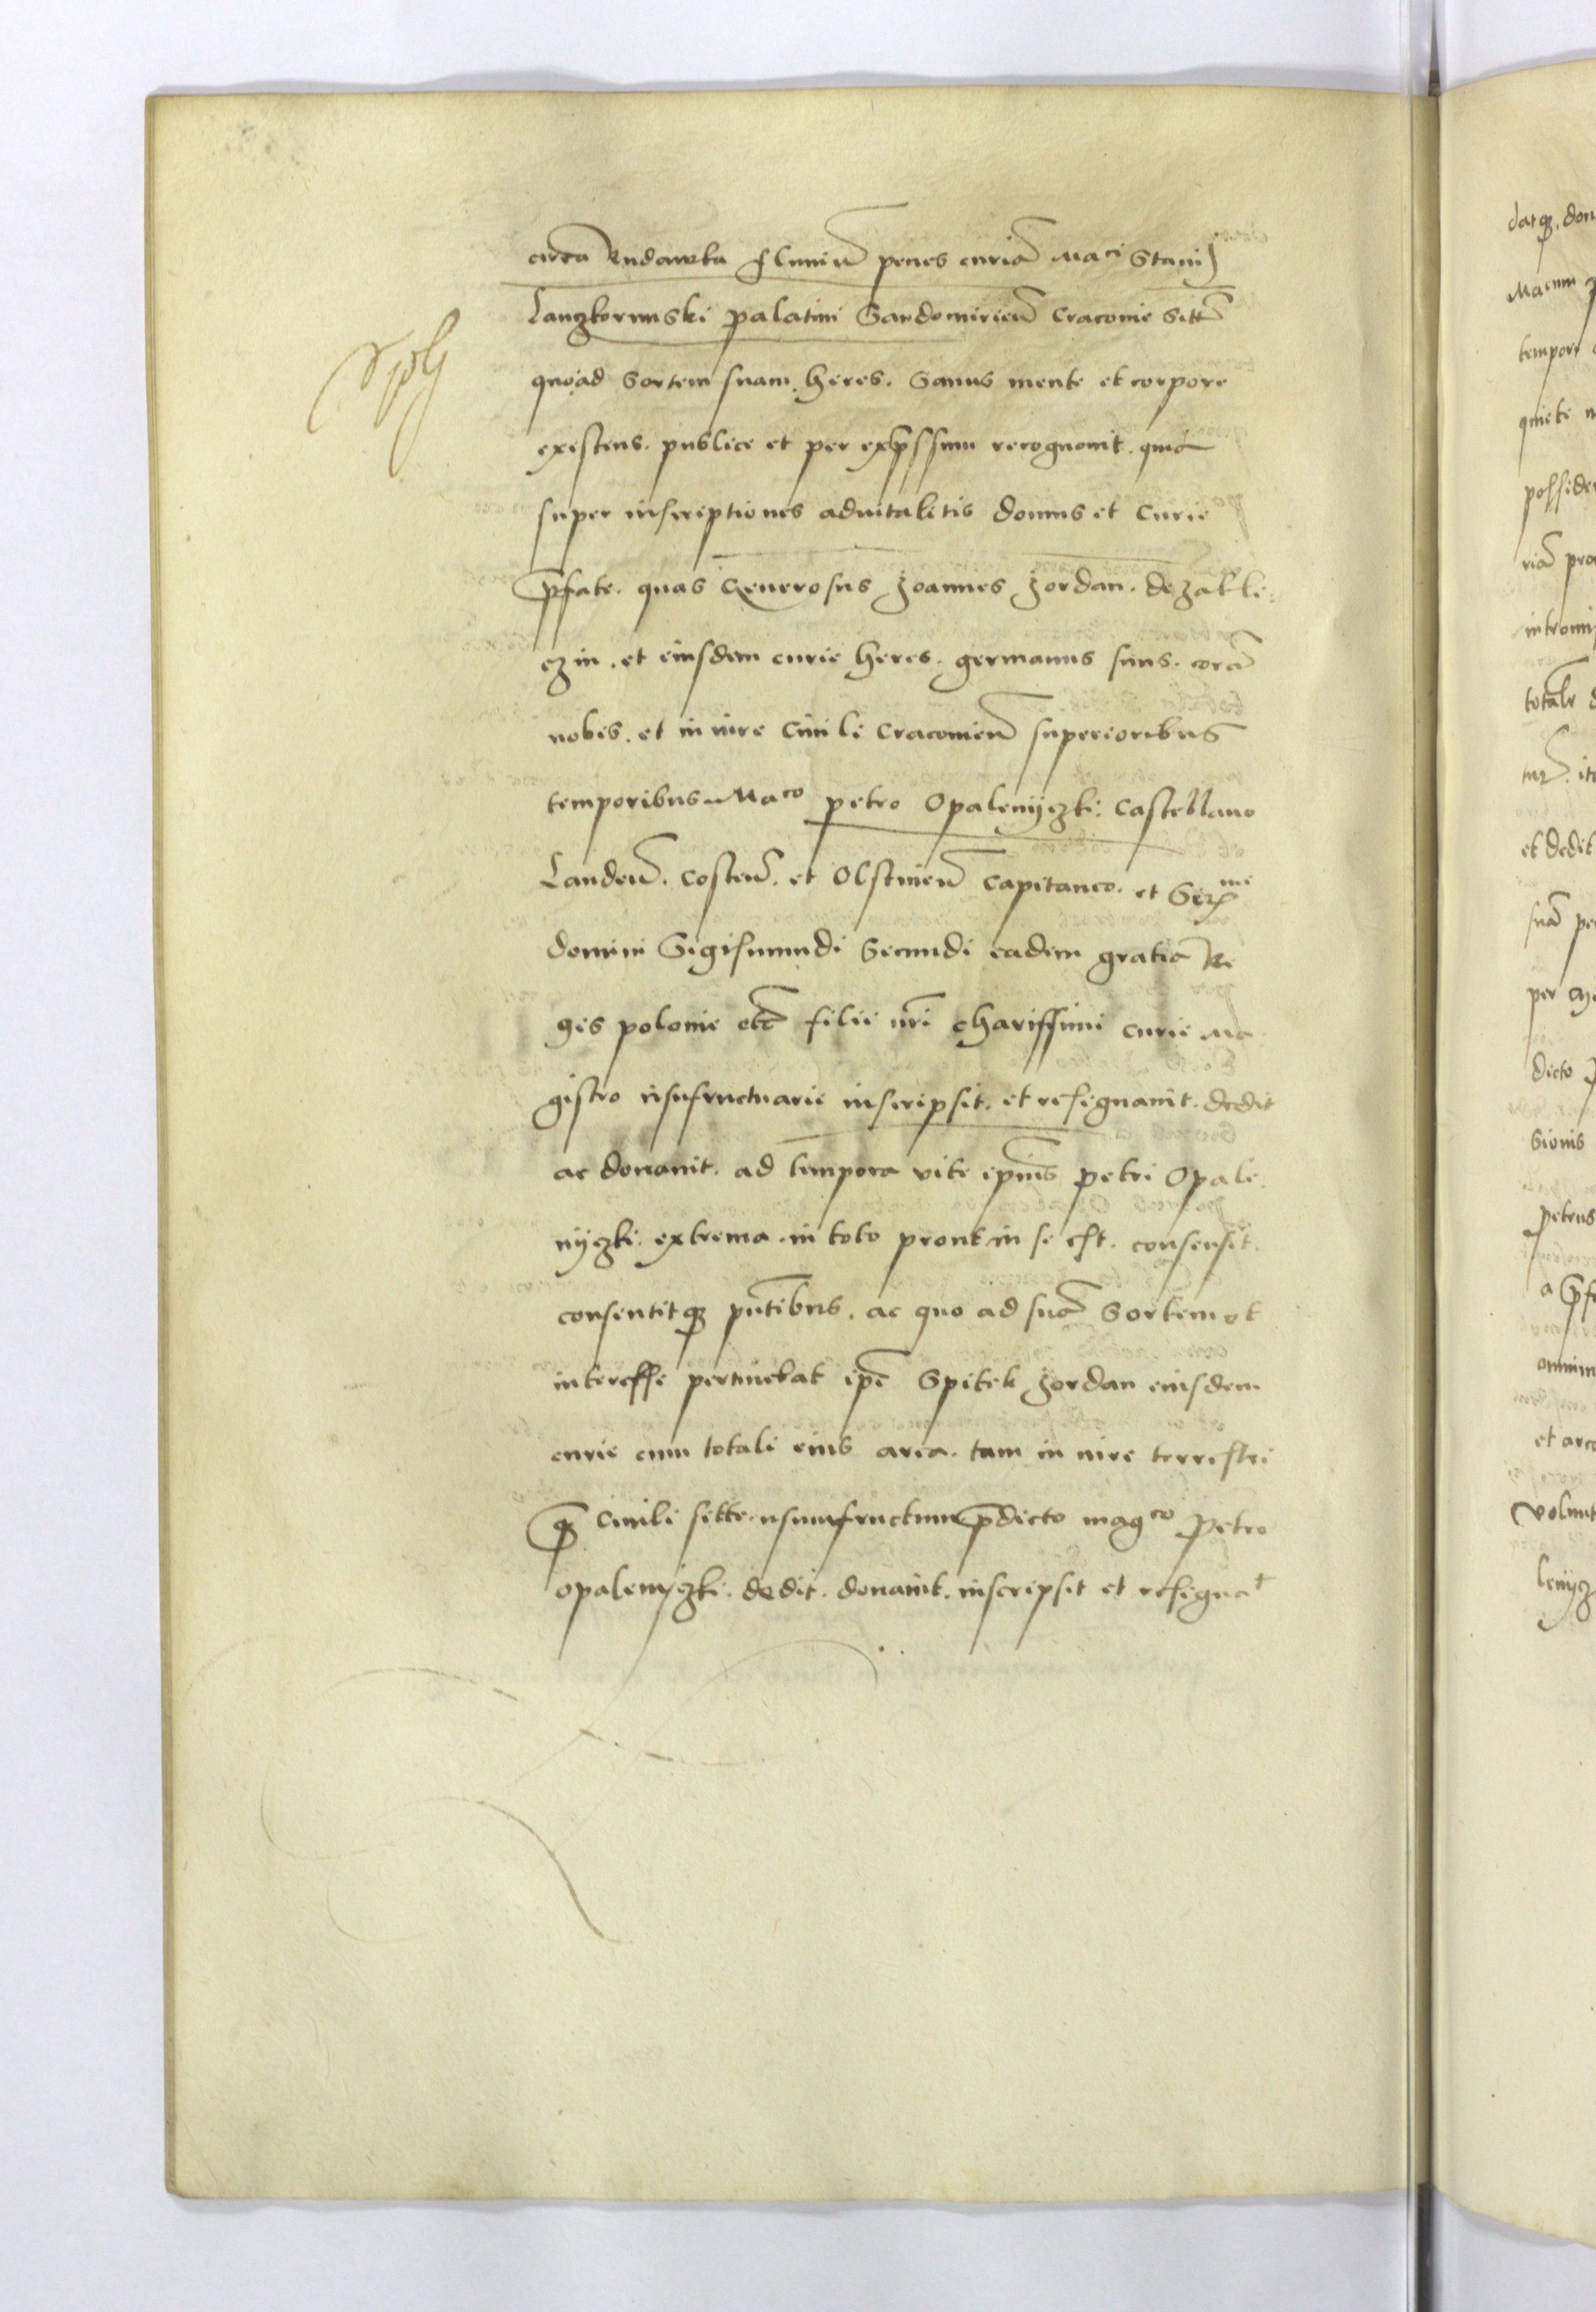 circa Rudawka fluuiũ penes curiã Maci Stanij
Lanzkorunski palatini Sandomirieñ Cracouie sittã
quoad Sortem suam heres. Sanus mente et corpore
existens. publice et per exp̃ssum recognouit. quia
super inscriptiones aduitalitis domus et Curie
p̃fate. quas Generosus Joannes Jordan. de Zakli
czin. et eiusdem curie heres. germanus suus. corã
nobis. et in iure Ciuili Cracouieñ superioribus
temporibus Maco petro Opalenyczki. Castellano
Landeñ. Costeñ. et Olstineñ Capitaneo. et Sermi
domini Sigismundi Secundi eadem gratia Re
gis polonie etc̃ filii nr̃i charissimi curie Ma
gistro vsufructuarie inscripsit. et resignauit. dedit
ac donauit. ad tempora vite ipius̃ petri Opale
nyczki. extrema. in toto prout in se est. consensit.
consentitq; pñtibus. ac quo ad suã Sortem et
interesse pertinebat ipẽ Spitek Jordan eiusdem
curie cum totali eius area. tam in iure terrestri
q̃ Ciuili sitte. vsumfructum p̃dicto magco Petro
Opalenyczki. dedit. donauit. inscripsit et resignat
datq;. don
Macum
tempor
quiete
posside
riã pro
intromi
totale
tur̃. it
et dedit
suã pe
per
dicto
Sionis
petrus
a p̃f
omnim
et arc
volunt
lenycz